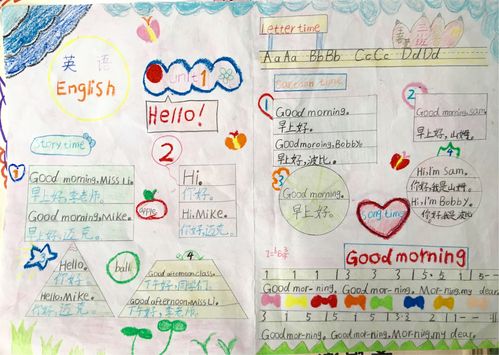 英 语
English
Unit 1
Hello!
Story time
1
Good morning, Miss Li.
早上好，李老师。
Good morning, Mike.
早上好，迈克。
2
Hi.
你好。
Hi, Mike.
你好，迈克。
apple
3
Hello.
你好。
Hello, Mike.
你好，迈克。
ball
4
Good afternoon, class.
下午好，同学们。
Good afternoon, Miss Li.
下午好，李老师。
Letter time
Aa Aa Bb Bb Cc Cc Dd Dd
Cartoon time
1
Good morning.
早上好。
Good morning, Bobby.
早上好，波比。
2
Good morning, Sam.
早上好，山姆。
3
Good morning.
早上好。
4
Hi, I'm Sam.
你好，我是山姆。
Hi, I'm Bobby.
你好，我是波比
Song time
Good morning
Good mor-ning, Good mor-ning. Mor-ning, my dear.
Good mor-ning. Good mor-ning. Morning, my dear.